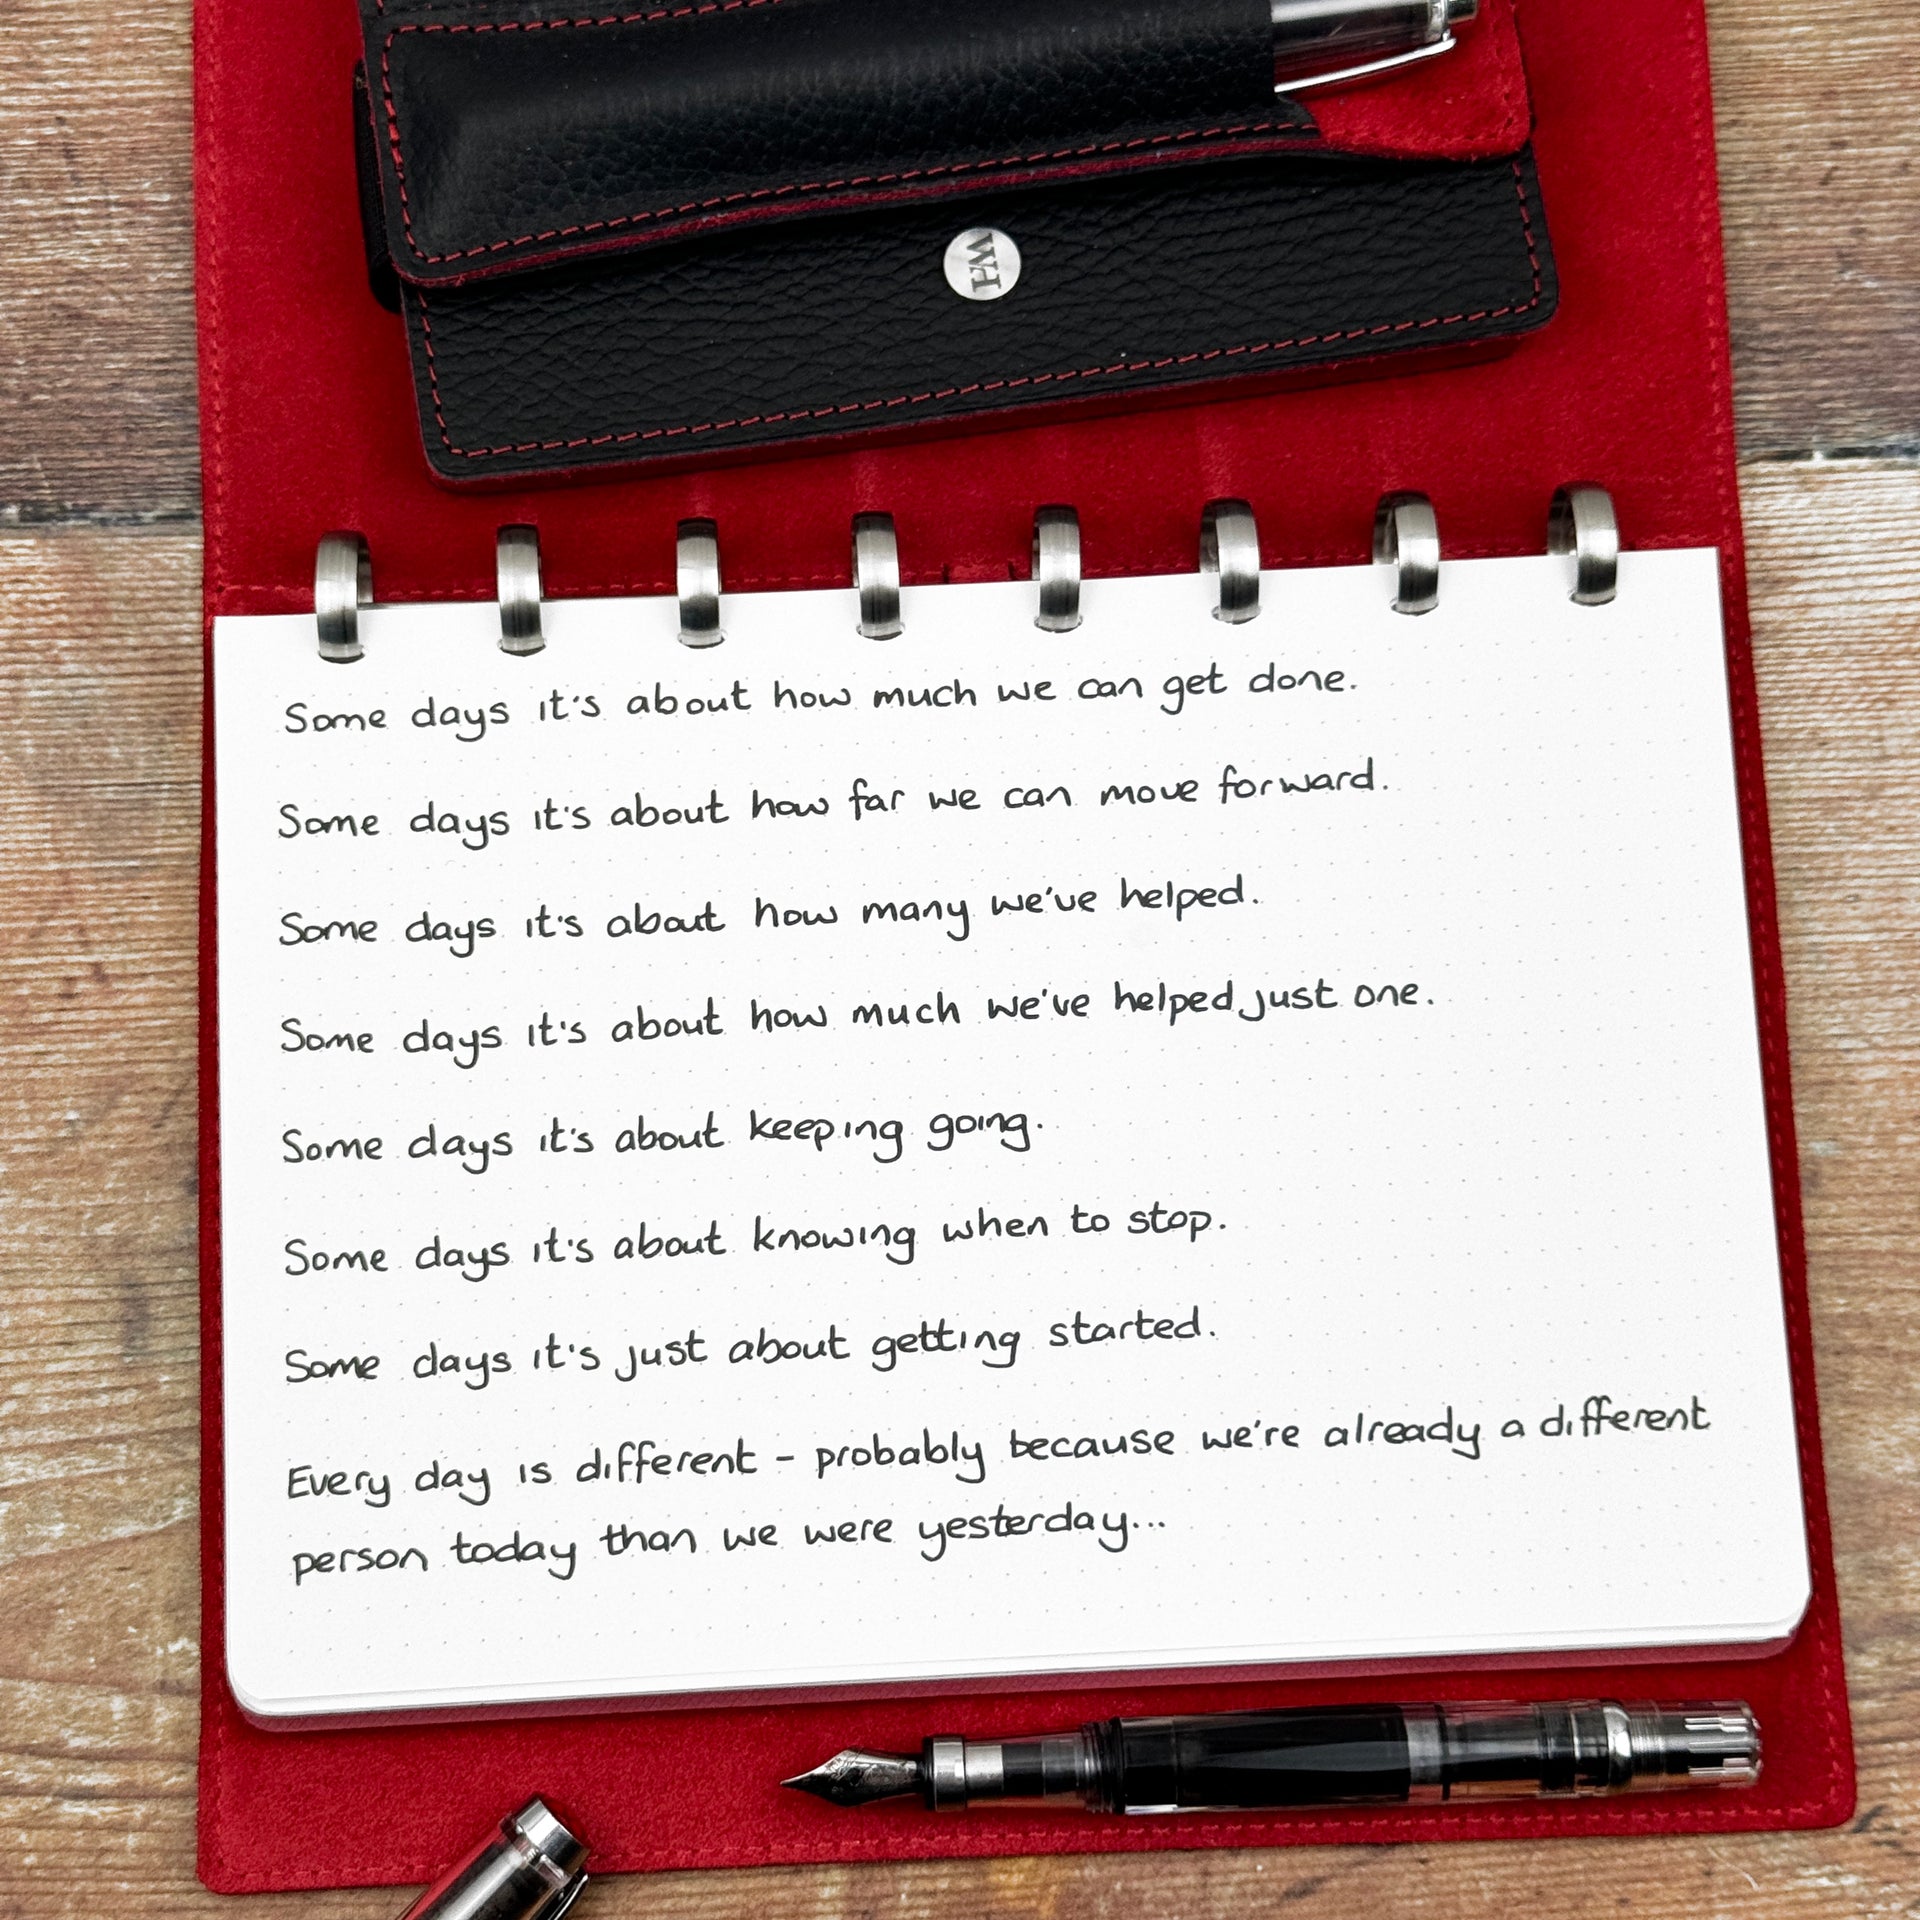 Some days it's about how much we can get done.
Some days it's about how far we can move forward.
Some days it's about how many we've helped.
Some days it's about how much we've helped just one.
Some days it's about keeping going.
Some days it's about knowing when to stop.
Some days it's just about getting started.
Every day is different - probably because we're already a different
person today than we were yesterday...